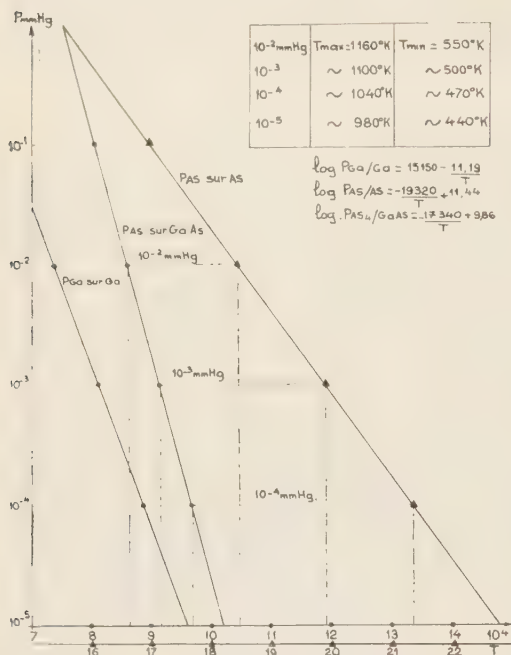 PmmHg
10-2mmHg Tmax=1160°K Tmin = 550°K
10-3 ~ 1100°K ~ 500°K
10-4 ~ 1040°K ~ 470°K
10-5 ~ 980°K ~ 440°K
log PGa/Ga = 15150 - 11,19/T
log PAS/AS = -19320/T + 11,44
log. PAS4/GaAS = -17340/T + 9,86
10-1
PAS sur AS
PAs sur Ga As
10-2 mmHg
10-2
PGa sur Ga
10-3
10-3mmHg
10-4
10-4mmHg.
10-5
7 8 9 10 11 12 13 14 104/T
16 17 18 19 20 21 22